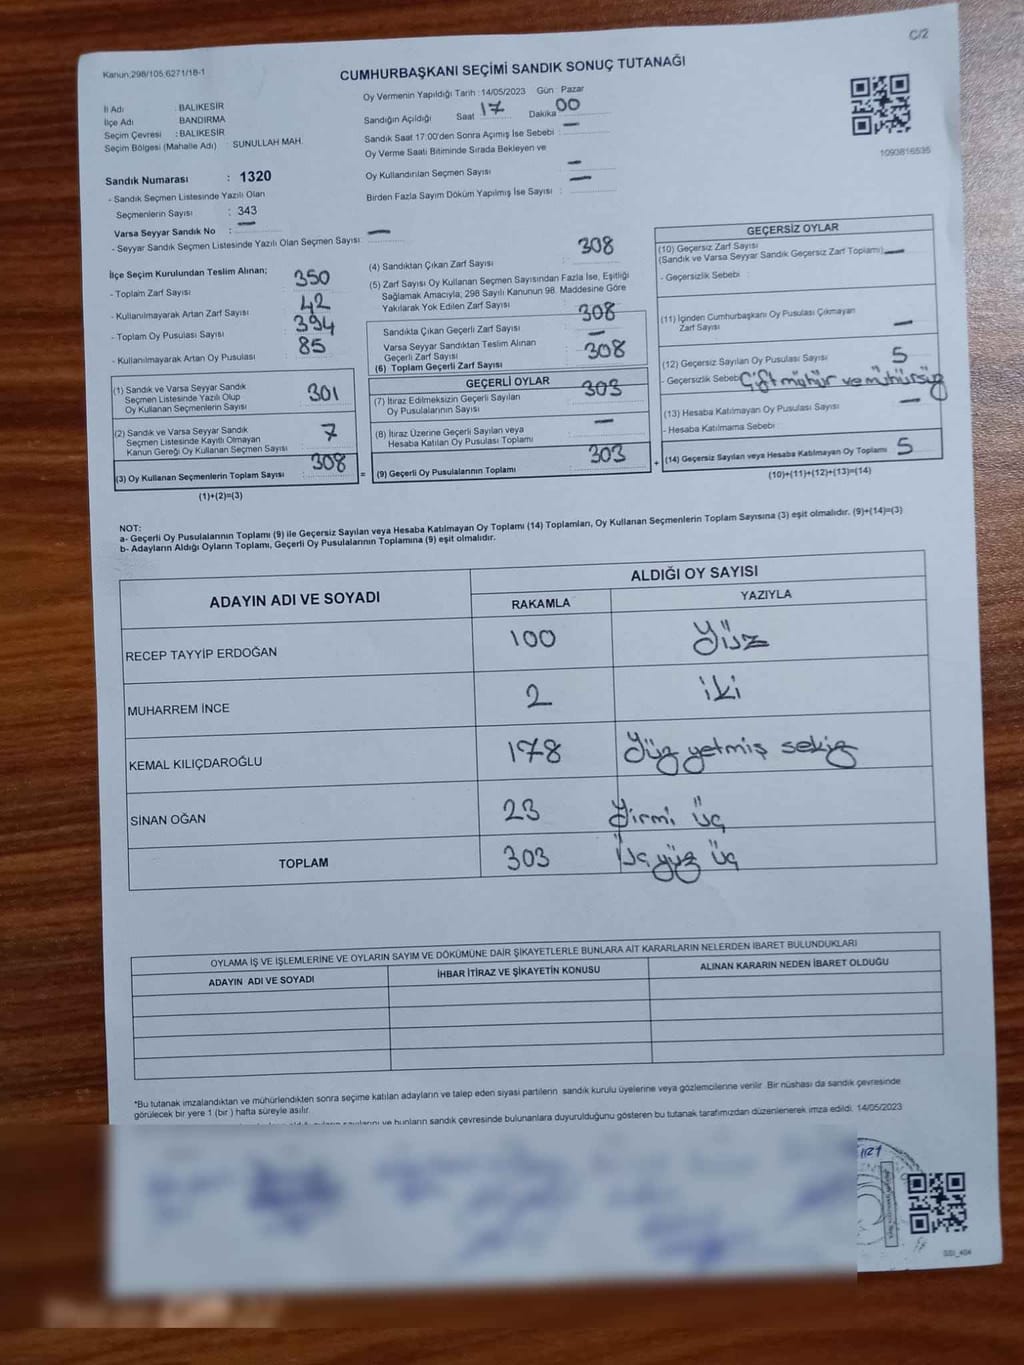 C/2
Kanun,298/105,6271/18-1
CUMHURBAŞKANI SEÇİMİ SANDIK SONUÇ TUTANAĞI
İl Adı : BALIKESİR
İlçe Adı : BANDIRMA
Seçim Çevresi : BALIKESİR
Seçim Bölgesi (Mahalle Adı) : SUNULLAH MAH.
Oy Vermenin Yapıldığı Tarih :14/05/2023 Gün : Pazar
Sandığın Açıldığı Saat 17 Dakika 00
Sandık Saat 17:00'den Sonra Açılmış İse Sebebi : —
Oy Verme Saati Bitiminde Sırada Bekleyen ve
Oy Kullandırılan Seçmen Sayısı : —
Birden Fazla Sayım Döküm Yapılmış İse Sayısı : —
1093816535
Sandık Numarası : 1320
- Sandık Seçmen Listesinde Yazılı Olan
Seçmenlerin Sayısı : 343
Varsa Seyyar Sandık No : —
- Seyyar Sandık Seçmen Listesinde Yazılı Olan Seçmen Sayısı : —
İlçe Seçim Kurulundan Teslim Alınan;
- Toplam Zarf Sayısı : 350
- Kullanılmayarak Artan Zarf Sayısı : 42
- Toplam Oy Pusulası Sayısı : 394
- Kullanılmayarak Artan Oy Pusulası : 85
(1) Sandık ve Varsa Seyyar Sandık
Seçmen Listesinde Yazılı Olup
Oy Kullanan Seçmenlerin Sayısı : 301
(2) Sandık ve Varsa Seyyar Sandık
Seçmen Listesinde Kayıtlı Olmayan
Kanun Gereği Oy Kullanan Seçmen Sayısı : 7
(3) Oy Kullanan Seçmenlerin Toplam Sayısı : 308
(1)+(2)=(3)
(4) Sandıktan Çıkan Zarf Sayısı : 308
(5) Zarf Sayısı Oy Kullanan Seçmen Sayısından Fazla İse, Eşitliği
Sağlamak Amacıyla, 298 Sayılı Kanunun 98. Maddesine Göre
Yakılarak Yok Edilen Zarf Sayısı :
Sandıkta Çıkan Geçerli Zarf Sayısı : 308
Varsa Seyyar Sandıktan Teslim Alınan
Geçerli Zarf Sayısı : —
(6) Toplam Geçerli Zarf Sayısı : 308
GEÇERLİ OYLAR
(7) İtiraz Edilmeksizin Geçerli Sayılan
Oy Pusulalarının Sayısı : 303
(8) İtiraz Üzerine Geçerli Sayılan veya
Hesaba Katılan Oy Pusulası Toplamı : —
= (9) Geçerli Oy Pusulalarının Toplamı : 303
GEÇERSİZ OYLAR
(10) Geçersiz Zarf Sayısı
(Sandık ve Varsa Seyyar Sandık Geçersiz Zarf Toplamı) : —
- Geçersizlik Sebebi :
(11) İçinden Cumhurbaşkanı Oy Pusulası Çıkmayan
Zarf Sayısı : —
(12) Geçersiz Sayılan Oy Pusulası Sayısı : 5
- Geçersizlik Sebebi : Çift mühür ve mühürsüz
(13) Hesaba Katılmayan Oy Pusulası Sayısı : —
- Hesaba Katılmama Sebebi :
+ (14) Geçersiz Sayılan veya Hesaba Katılmayan Oy Toplamı : 5
(10)+(11)+(12)+(13)=(14)
NOT:
a- Geçerli Oy Pusulalarının Toplamı (9) ile Geçersiz Sayılan veya Hesaba Katılmayan Oy Toplamı (14) Toplamları, Oy Kullanan Seçmenlerin Toplam Sayısına (3) eşit olmalıdır. (9)+(14)=(3)
b- Adayların Aldığı Oyların Toplamı, Geçerli Oy Pusulalarının Toplamına (9) eşit olmalıdır.
ADAYIN ADI VE SOYADI
ALDIĞI OY SAYISI
RAKAMLA YAZIYLA
RECEP TAYYİP ERDOĞAN 100 Yüz
MUHARREM İNCE 2 iki
KEMAL KILIÇDAROĞLU 178 Yüz yetmiş sekiz
SİNAN OĞAN 23 Yirmi üç
TOPLAM 303 Üç yüz üç
OYLAMA İŞ VE İŞLEMLERİNE VE OYLARIN SAYIM VE DÖKÜMÜNE DAİR ŞİKAYETLERLE BUNLARA AİT KARARLARIN NELERDEN İBARET BULUNDUKLARI
ADAYIN ADI VE SOYADI İHBAR İTİRAZ VE ŞİKAYETİN KONUSU ALINAN KARARIN NEDEN İBARET OLDUĞU
*Bu tutanak imzalandıktan ve mühürlendikten sonra seçime katılan adayların ve talep eden siyasi partilerin sandık kurulu üyelerine veya gözlemcilerine verilir. Bir nüshası da sandık çevresinde
görülecek bir yere 1 (bir ) hafta süreyle asılır.
ve bunların sandık çevresinde bulunanlara duyurulduğunu gösteren bu tutanak tarafımızdan düzenlenerek imza edildi. 14/05/2023
SSI_404